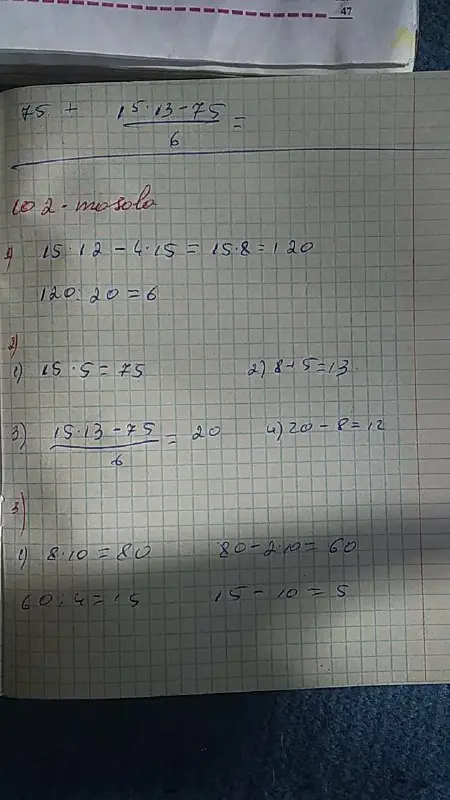 47
75 + 15·13-75 / 6 =
102-masala
1) 15·12 - 4·15 = 15·8 = 120
120:20 = 6
2)
1) 15·5 = 75 2) 8+5=13.
3) 15·13-75 / 6 = 20 4) 20-8=12
3)
1) 8·10 = 80 80-2·10 = 60
60:4=15 15-10=5